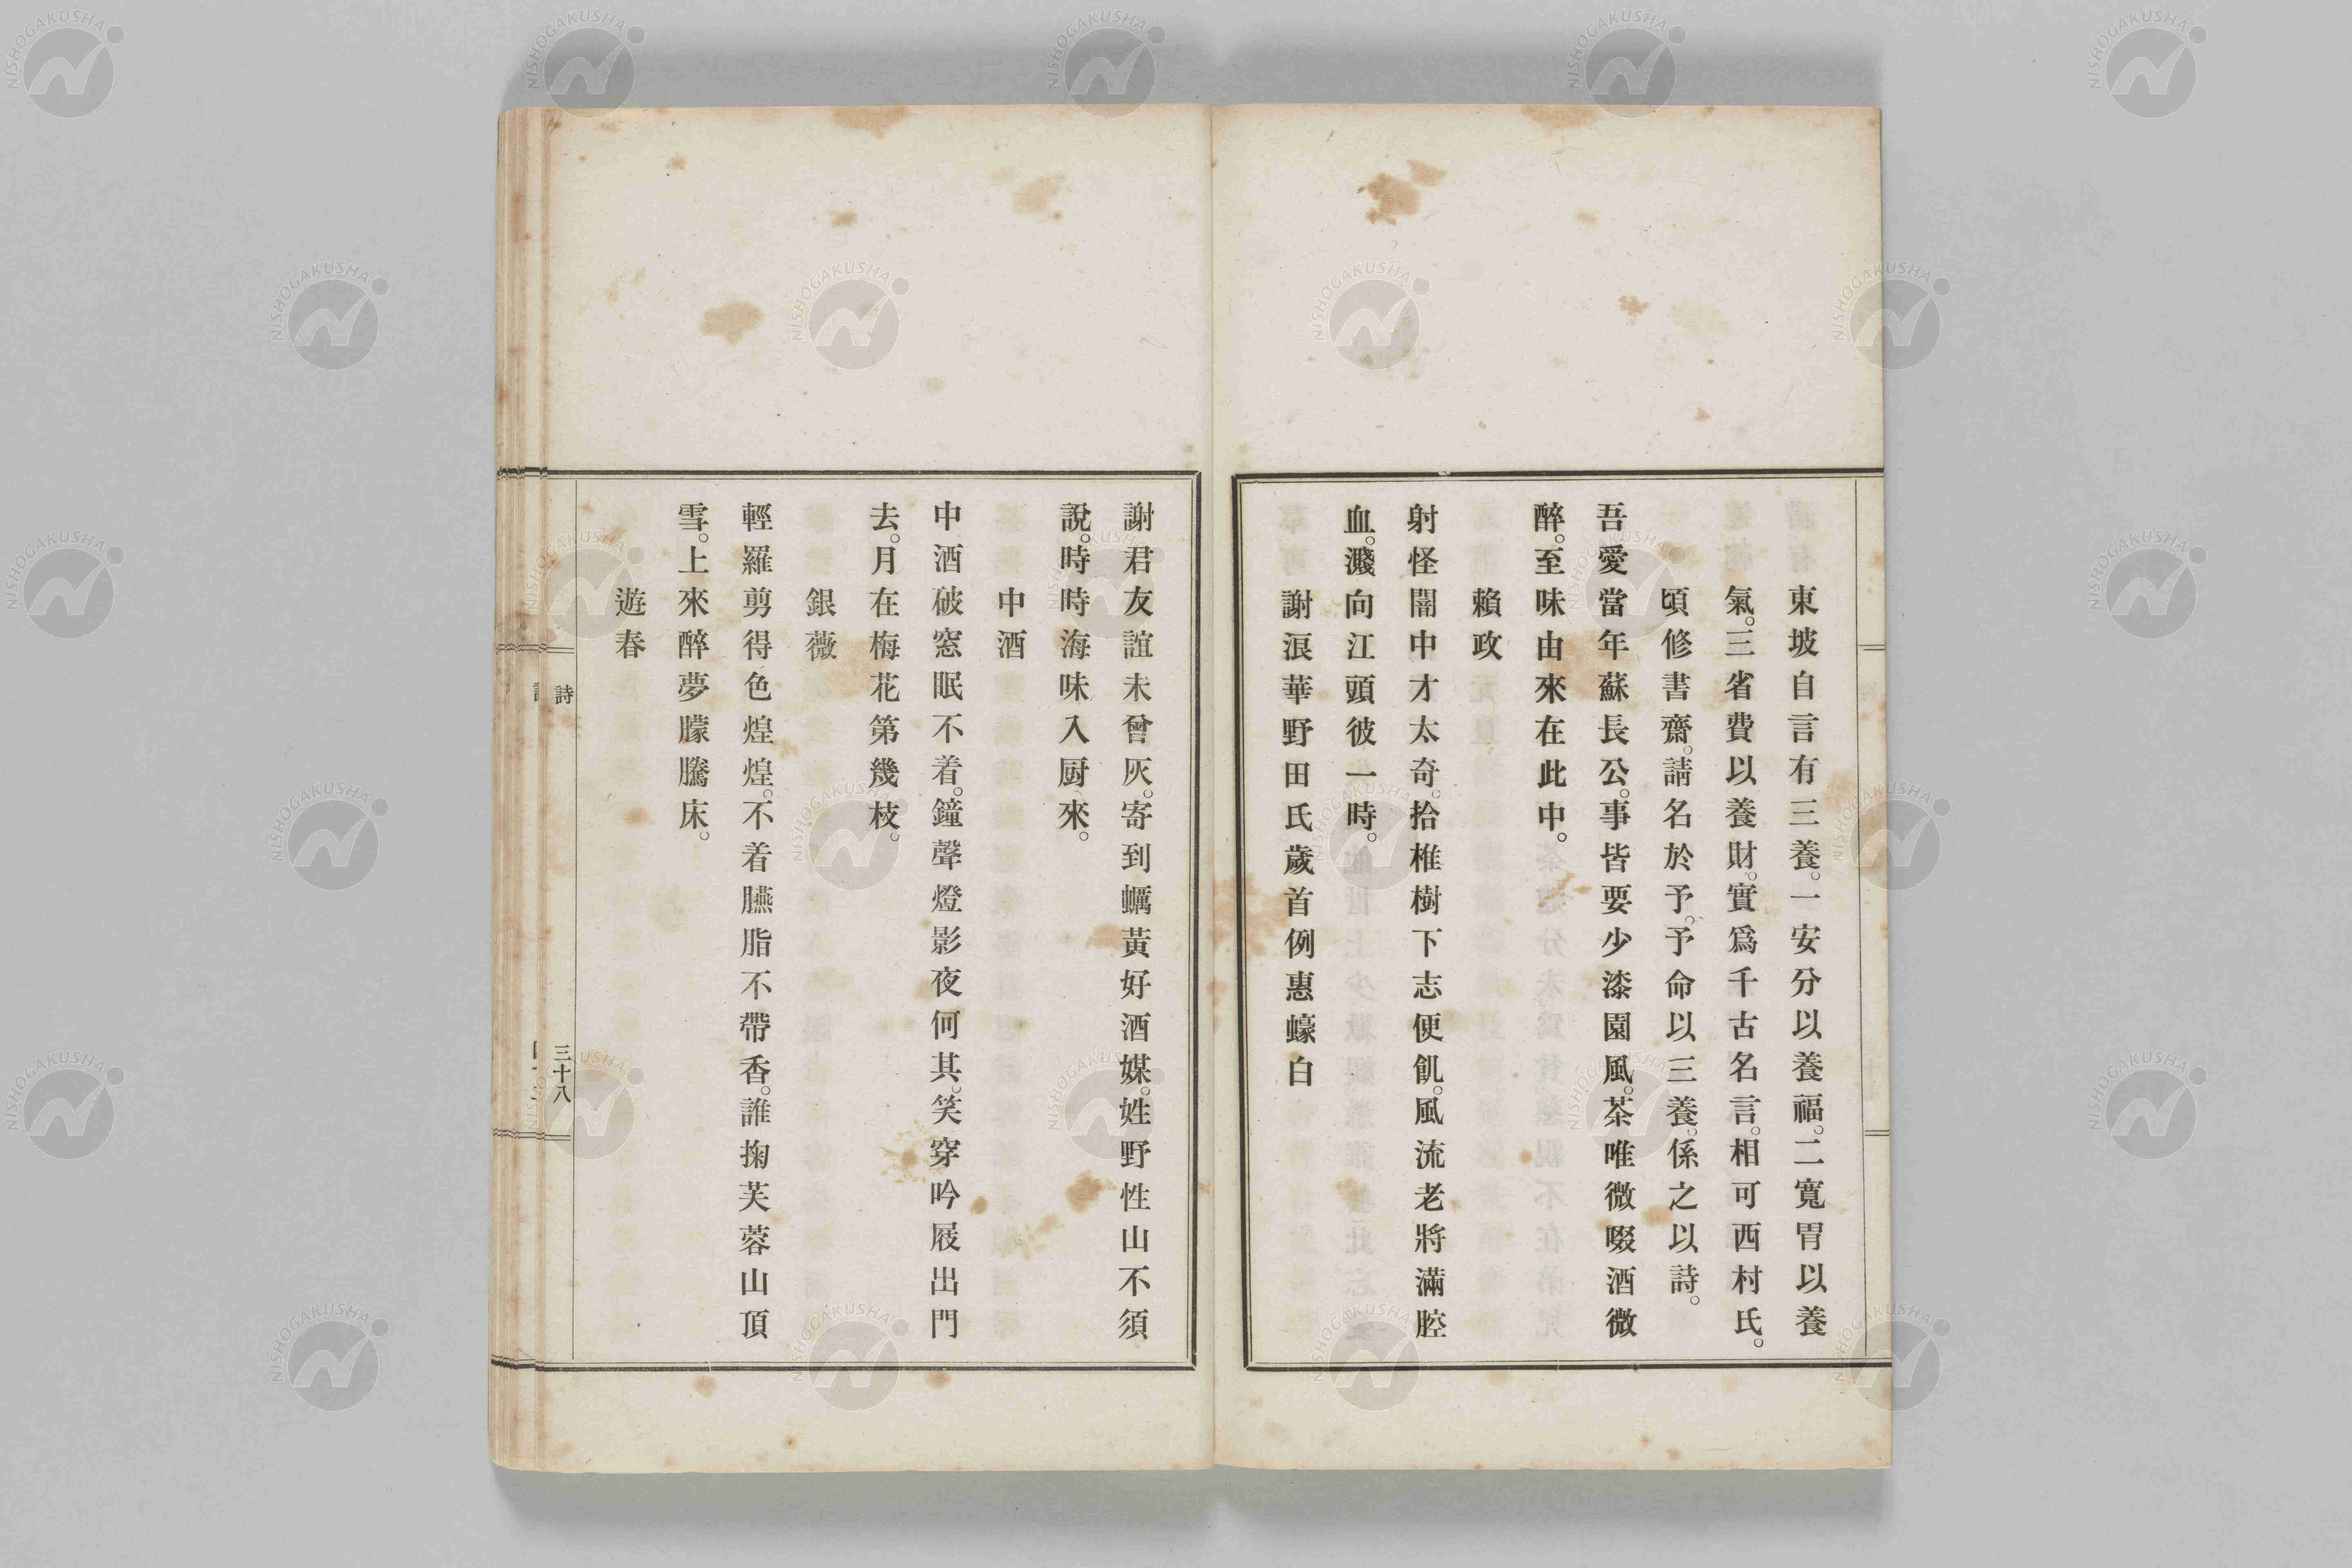 東坡自言有三養。一安分以養福。二寬胃以養
氣。三省費以養財。實爲千古名言。相可西村氏。
頃修書齋。請名於予。予命以三養。係之以詩。
吾愛當年蘇長公。事皆要少漆園風。茶唯微啜酒微
醉。至味由來在此中。
賴政
射怪闇中才太奇。拾椎樹下志便飢。風流老將滿腔
血。濺向江頭彼一時。
謝浪華野田氏歲首例惠蠔白
謝君友誼未曾灰。寄到蠣黃好酒媒。姓野性山不須
說。時時海味入厨來。
中酒
中酒破窓眠不着。鐘聲燈影夜何其。笑穿吟屐出門
去。月在梅花第幾枝。
銀薇
輕羅剪得色煌煌。不着臙脂不帶香。誰掬芙蓉山頂
雪。上來醉夢朦騰床。
遊春
詩
三十八
NISHOGAKUSHA